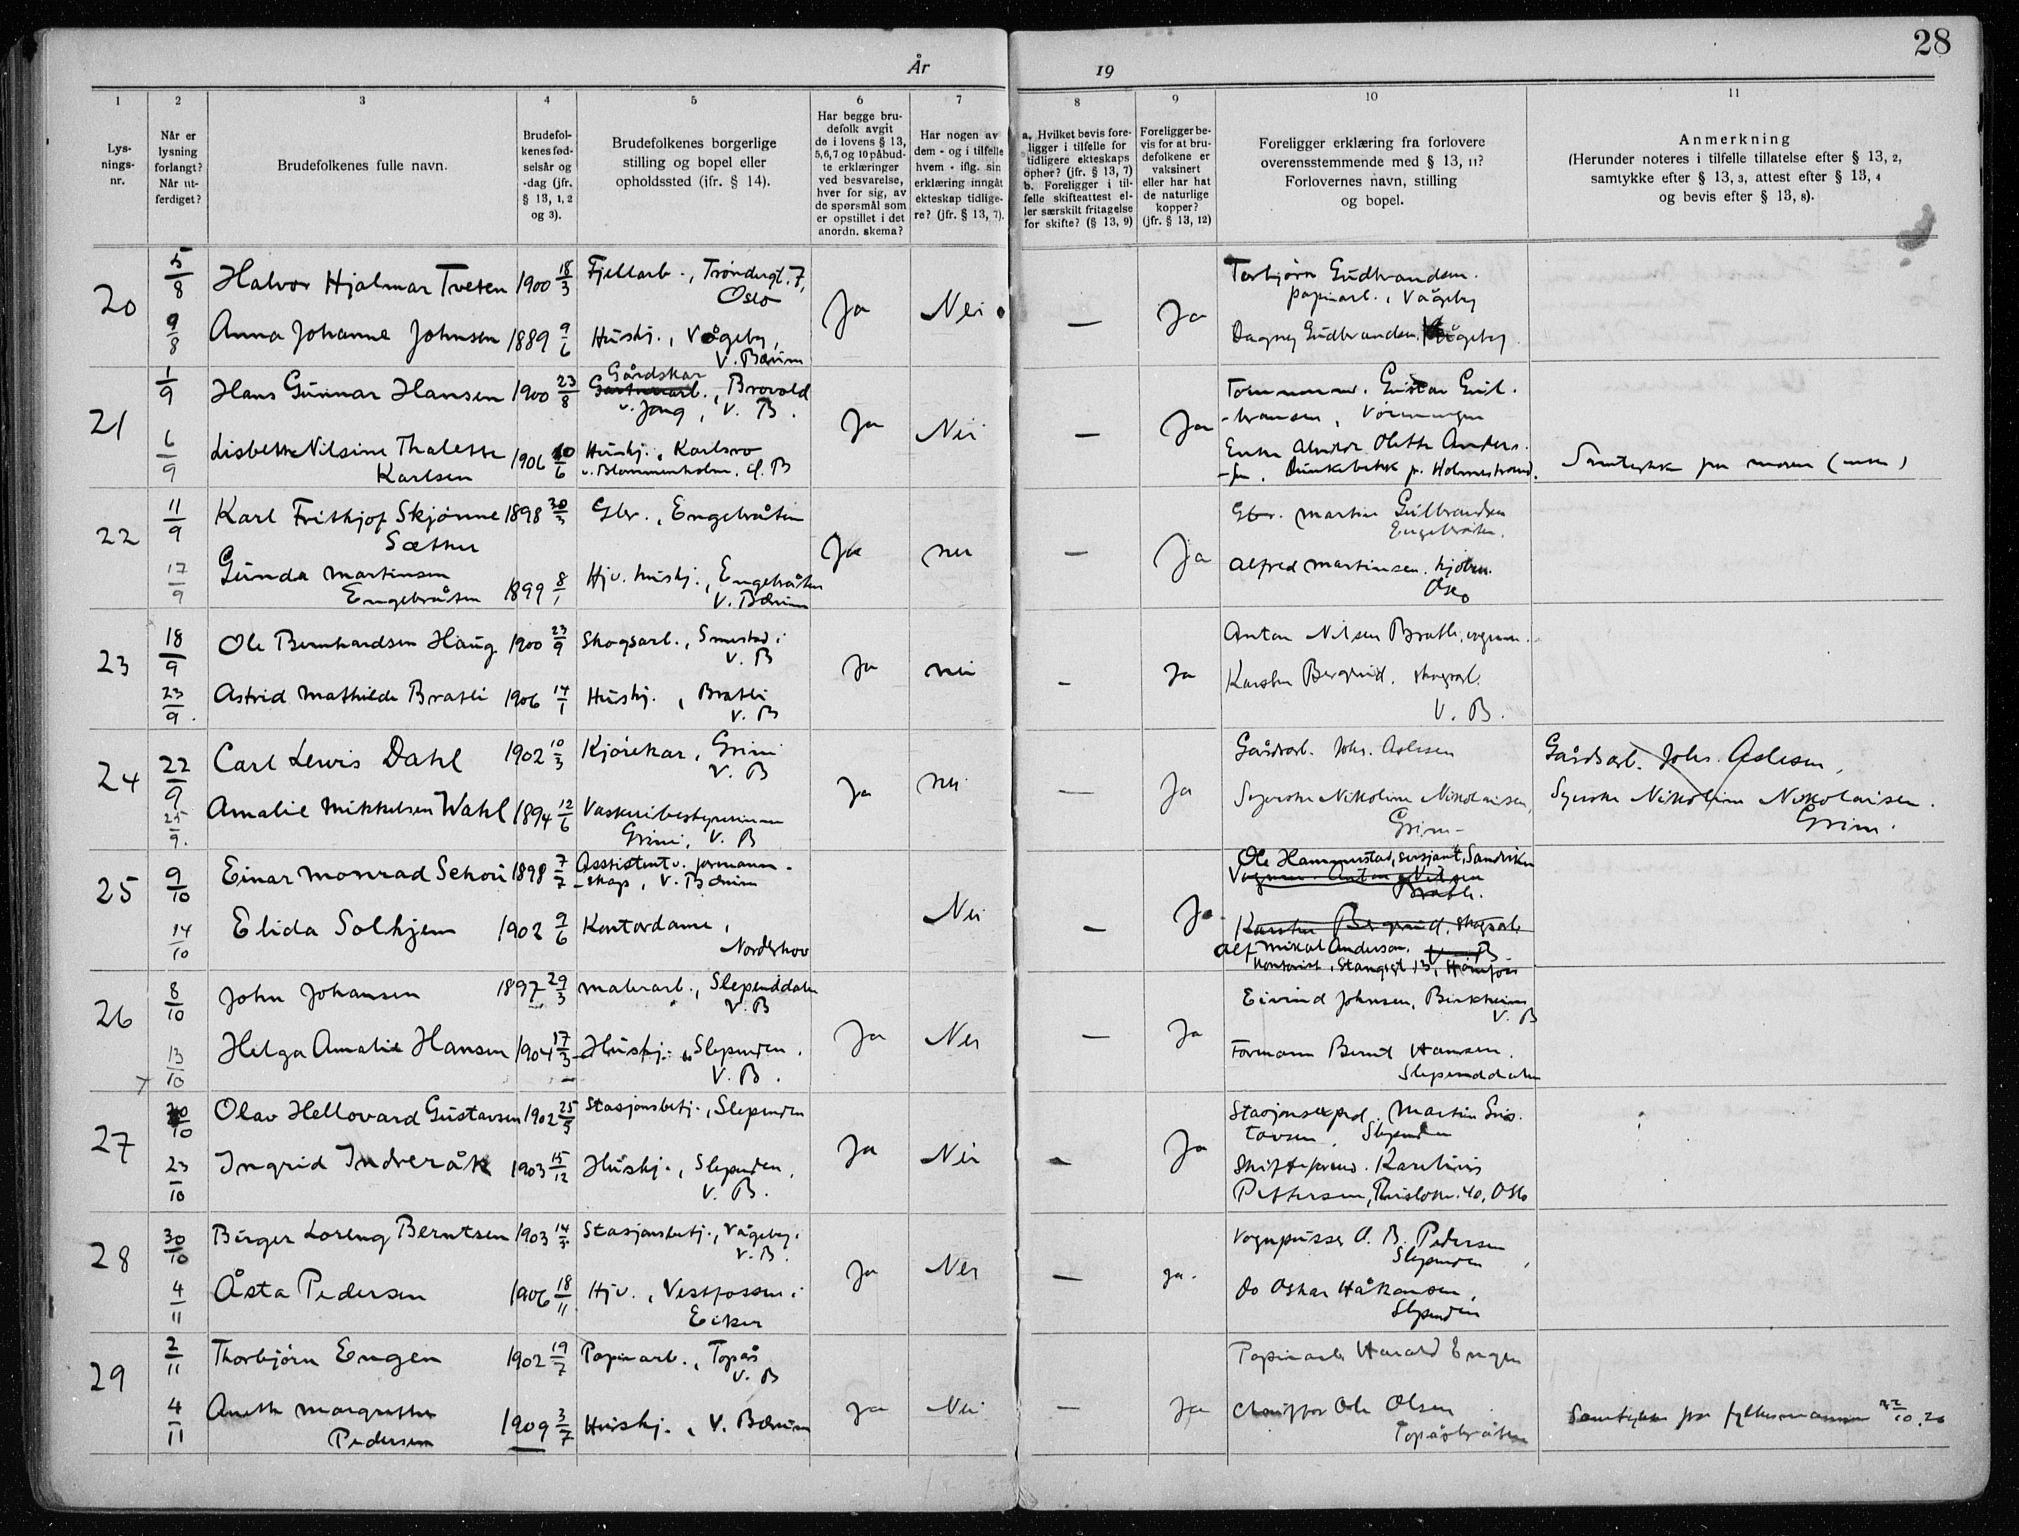 28
År 19
1 2 3 4 5 6 7 8 9 10 11
Lys-
nings-
nr.
Når er
lysning
forlangt?
Når ut-
ferdiget?
Brudefolkenes fulle navn.
Brudefol-
kenes fød-
selsår og
-dag (jfr.
§ 13, 1, 2
og 3).
Brudefolkenes borgerlige
stilling og bopel eller
opholdssted (jfr. § 14).
Har begge bru-
defolk avgit
de i lovens § 13,
5,6,7 og 10 påbud-
te erklæringer
ved besvarelse,
hver for sig, av
de spørsmål som
er opstillet i det
anordn. skema?
Har nogen av
dem - og i tilfelle
hvem - iflg. sin
erklæring inngåt
ekteskap tidlige-
re? (jfr. § 13, 7).
a. Hvilket bevis fore-
ligger i tilfelle for
tidligere ekteskaps
ophør? (jfr. § 13, 7)
b. Foreligger i til-
felle skifteattest el-
ler særskilt fritagelse
for skifte? (§ 13, 9)
Foreligger be-
vis for at bru-
defolkene er
vaksinert
eller har hat
de naturlige
kopper?
(jfr. § 13, 12)
Foreligger erklæring fra forlovere
overensstemmende med § 13, 11?
Forlovernes navn, stilling
og bopel.
Anmerkning
(Herunder noteres i tilfelle tillatelse efter § 13, 2,
samtykke efter § 13, 3, attest efter § 13, 4
og bevis efter § 13, 8).
20
5/8 Halvor Hjalmar Tveten 1900 18/3 Fjellarb., Trøndergt. 7,
Oslo
Ja Nei — Ja
Torbjørn Gudbrandsen.
papirarb., Vågeby
9/8 Anna Johanne Johnsen 1889 9/6 Hushj., Vågeby,
V. Bærum
Dagny Gudbrandsen, Vågeby
21
1/9 Hans Gunnar Hansen 1900 23/8 Gårdskar
Gartnerarb., Brovold
v. Jong, V. B.
Ja Nei — Ja
Tømmerm. Gustav Gul-
bransen,
6/9 Lisbeth Nilsine Thalette
Karlsen 1906 10/6 Hushj., Karlsro
v. Blommenholm, Ø. B
Enke Olette Anders-
Holmestrand.
Samtykke fra moren (enke)
22
11/9 Karl Frithjof Skjønne 1898 30/3 Gbr., Engebråten
Sæther
Ja nei — Ja
Gbr. Martin Gulbrandsen
Engebråten.
17/9 Gunda Martinsen
Engebråten 1899 8/1 Hjv. hushj., Engebråten
V. Bærum
Alfred Martinsen.
Oslo
23
18/9 Ole Bernhardsen Haug 1900 23/9 Skogsarb., Smestad i
V. B
Ja nei — Ja
Anton Nilsen Bratli, vognm.
23/9. Astrid Mathilde Bratli 1906 14/1 Hushj., Bratli
V. B
Karsten Bergrud, skogsarb.
V. B.
24
22/9 Carl Lewis Dahl 1902 10/3 Kjørekar, Grini
V. B
Ja nei — Ja
Gårdsarb. Johs. Aslesen
Gårdsarb. Johs. Aslesen,
25/9. Amalie Mikkelsen Wahl 1894 12/6 Vaskeribestyrerinne
Grini, V. B
Syerske Nikoline Nikolaisen,
Grini
Syerske Nikoline Nikolaisen.
Grini.
25
9/10 Einar Monrad Schou 1898 7/7 Assistent v. formann-
skap, V. Bærum
Nei — Ja
Ole Hammerstad, sersjant, Sandviken
Vognm. Anton Nilsen
Bratli.
14/10 Elida Solhjem 1902 9/6 Kontordame,
Norderhov
Karsten Bergrud, skogsarb.
Alf Mikal Anderson, V. B
Kontorist, Stangsgt 13, Hønefoss
26
8/10 John Johansen 1897 29/3 Malerarb., Slependdalen
V. B
Ja Nei — Ja
Eivind Johnsen, Birkheim
V. B
13/10 Helga Amalie Hansen 1904 17/3 Hushj., Slependen.
V. B.
Formann Bernt Hansen.
Slependdalen
27
20/10 Olav Hellovard Gustavsen 1902 25/5 Stasjonsbetj., Slependen
Ja Nei — Ja
Stasjonsexped. Martin Gus-
tavsen, Slependen
23/10 Ingrid Indreråk 1903 15/12 Hushj., Slependen,
V. B.
Pettersen, 40, Oslo
28
30/10 Birger Loreng Berntsen 1903 14/3 Stasjonsbetj., Vågeby,
V. B.
Ja Nei — ja.
Vognpusser O. B. Pedersen
Slependen,
4/11 Åsta Pedersen 1906 18/11 Hjv., Vestfossen i
Eiker
Do Oskar Håkansen,
Slependen
29
2/11 Thorbjørn Engen 1902 19/7 Papirarb., Topås
V. B
ja Nei — ja
Papirarb. Harald Engen
4/11 Aneth Margrethe
Pedersen 1909 3/7 Hushj., V. Bærum
Chauffør Ole Olsen
Topåsbråten
Samtykke fra fylkesmannen 22/10. 26